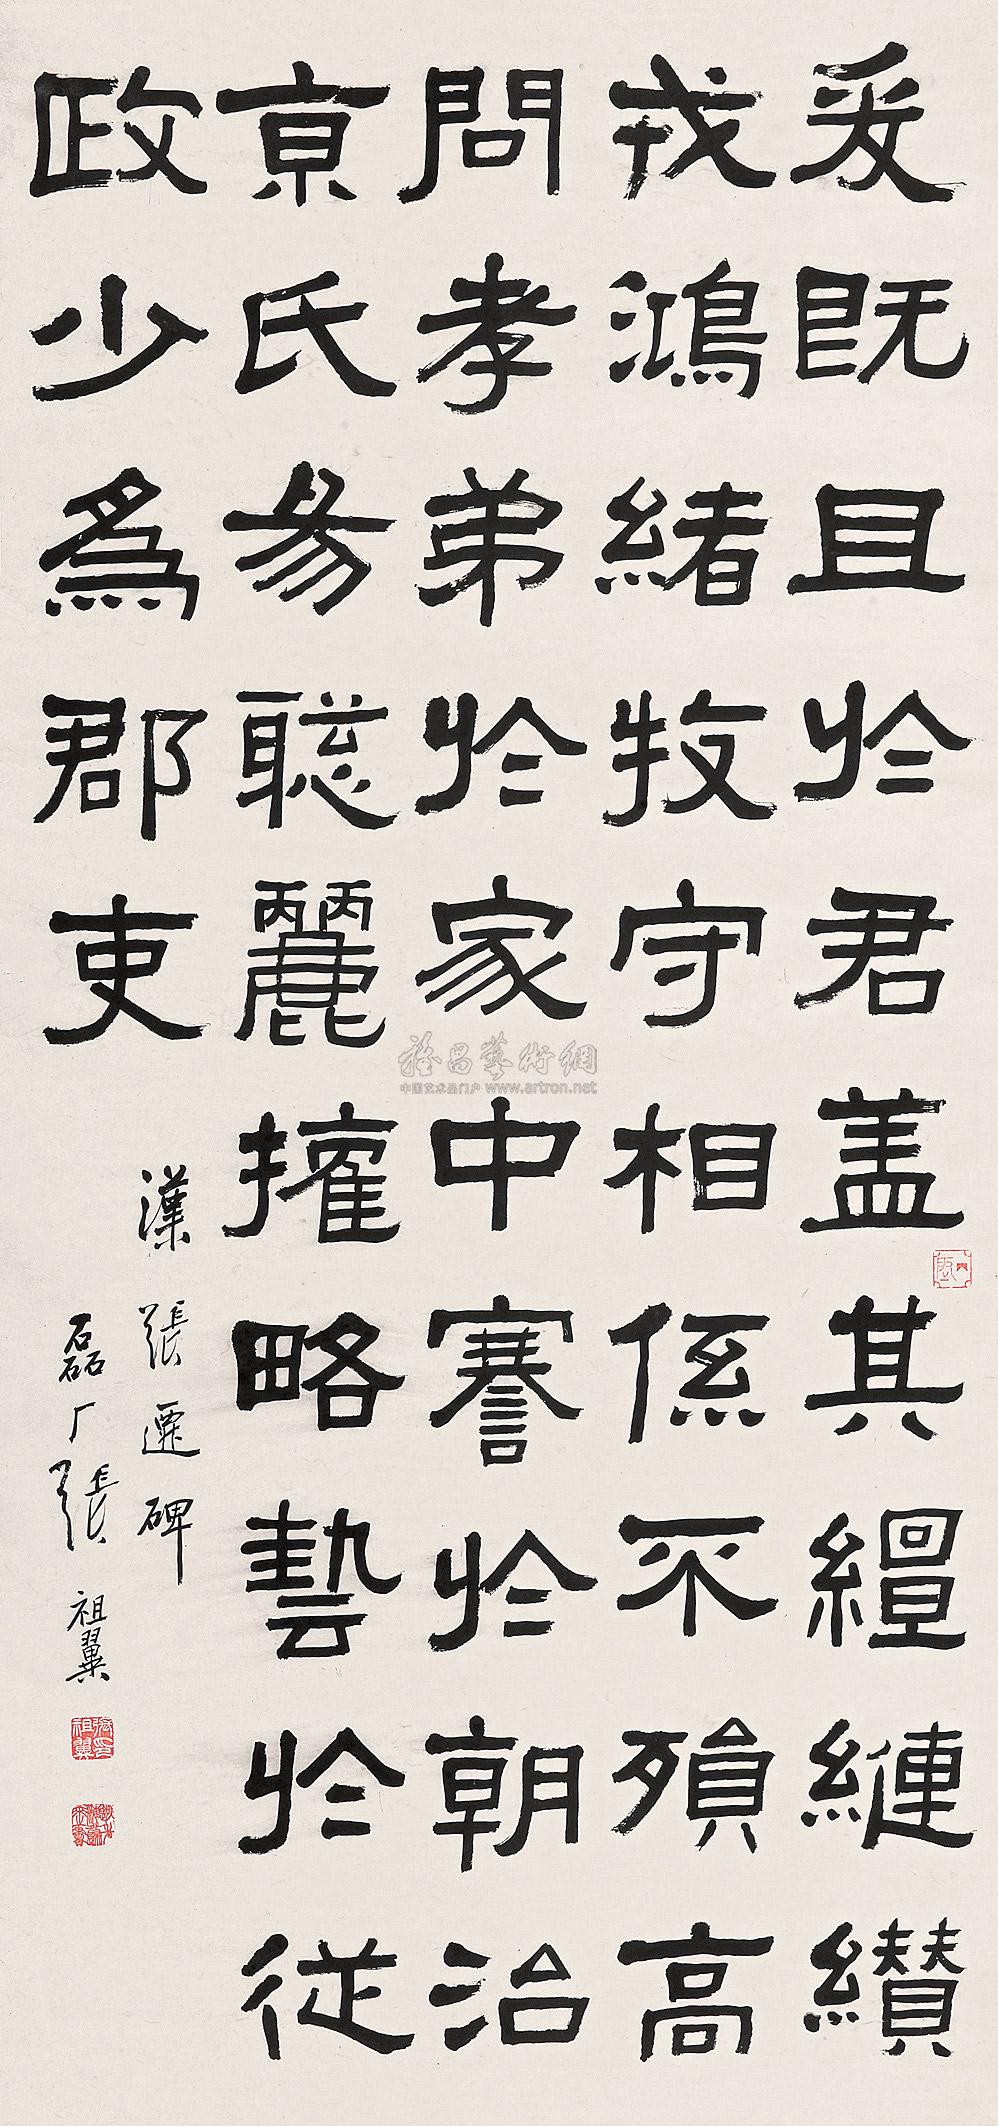 爰既且於君盖其繵縺纘
戎鴻緒牧守相係不殞高
問孝弟於家中謇於朝治
京氏昜聡麗權略藝於従
政少為郡吏
漢張遷碑
磊厂張祖翼
雅昌藝術網
中国艺术品门户 www.artron.net